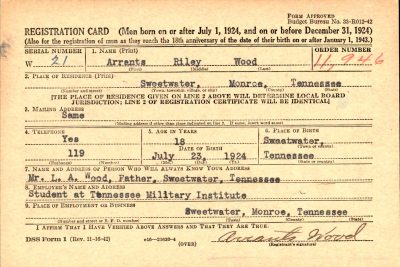 Form Approved
Budget Bureau No. 33-R012-42
REGISTRATION CARD (Men born on or after July 1, 1924, and on or before December 31, 1924)
(Also for the registration of men as they reach the 18th anniversary of the date of their birth on or after January 1, 1943.)
SERIAL NUMBER 1. NAME (Print) ORDER NUMBER
W 21 Arrents Riley Wood 11,946
(First) (Middle) (Last)
2. PLACE OF RESIDENCE (Print)
Sweetwater, Monroe, Tennessee
[THE PLACE OF RESIDENCE GIVEN ON LINE 2 ABOVE WILL DETERMINE LOCAL BOARD
JURISDICTION; LINE 2 OF REGISTRATION CERTIFICATE WILL BE IDENTICAL]
3. MAILING ADDRESS
Same
[Mailing address if other than place indicated on line 2. If same, insert word same]
4. TELEPHONE 5. AGE IN YEARS 6. PLACE OF BIRTH
Yes 18 Sweetwater,
DATE OF BIRTH
119 July 23, 1924 Tennessee
(Exchange) (Number) (Mo.) (Day) (Yr.) (State or country)
7. NAME AND ADDRESS OF PERSON WHO WILL ALWAYS KNOW YOUR ADDRESS
Mr. L. A. Wood, Father, Sweetwater, Tennessee
8. EMPLOYER'S NAME AND ADDRESS
Student at Tennessee Military Institute
9. PLACE OF EMPLOYMENT OR BUSINESS
Sweetwater, Monroe, Tennessee
(Number and street or R. F. D. number) (Town) (County) (State)
I AFFIRM THAT I HAVE VERIFIED ABOVE ANSWERS AND THAT THEY ARE TRUE.
DSS Form 1 (Rev. 11-16-42) (OVER) Arrants Wood
(Registrant's signature)